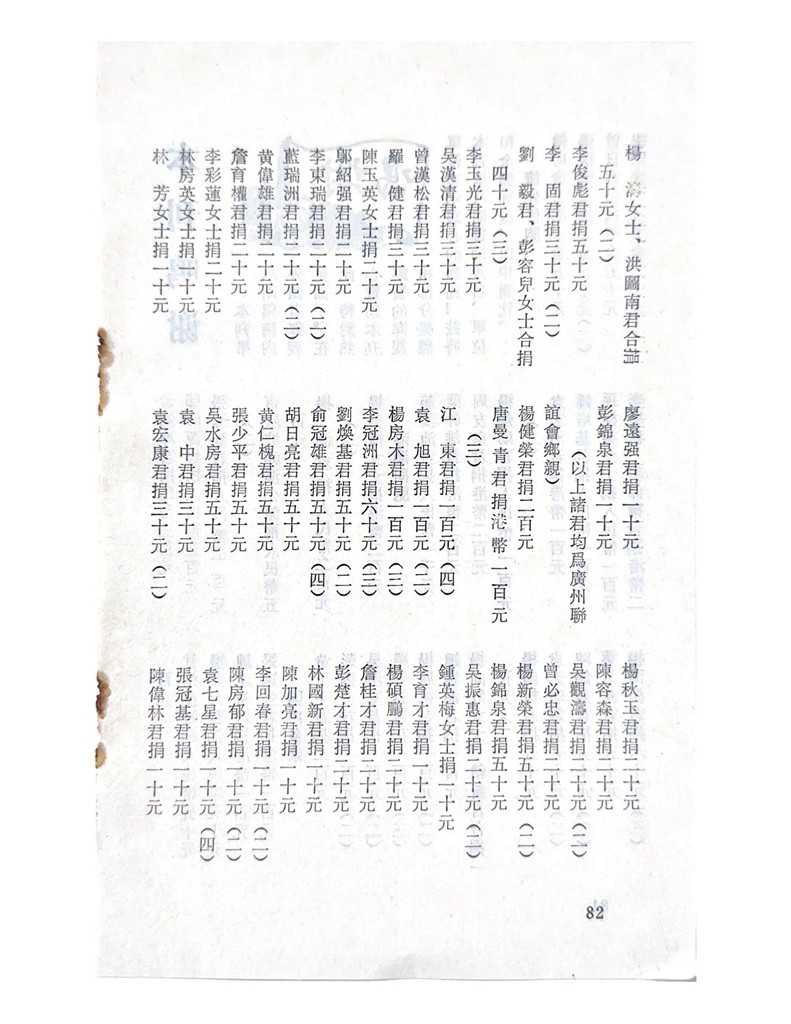 楊 濤女士、洪圖南君合捐
五十元（二）
李俊彪君捐五十元
李 固君捐三十元（二）
劉 毅君、彭容兒女士合捐
四十元（三）
李玉光君捐三十元
吳漢清君捐三十元
曾漢松君捐三十元
羅 健君捐三十元
陳玉英女士捐二十元
鄔紹强君捐二十元
李東瑞君捐二十元（二）
藍瑞洲君捐二十元（二）
黄偉雄君捐二十元
詹育權君捐二十元
李彩蓮女士捐二十元
林房英女士捐一十元
林 芳女士捐一十元
廖遠强君捐一十元
彭錦泉君捐一十元
（以上諸君均爲廣州聯
誼會鄉親）
楊健榮君捐二百元
唐曼青君捐港幣一百元
（三）
江 東君捐一百元（四）
袁 旭君捐一百元（二）
楊房木君捐一百元（三）
李冠洲君捐六十元（三）
劉煥基君捐五十元（二）
俞冠雄君捐五十元（四）
胡日亮君捐五十元
黄仁槐君捐五十元
張少平君捐五十元
吳水房君捐五十元
袁 中君捐三十元
袁宏康君捐三十元（二）
楊秋玉君捐二十元
陳容森君捐二十元
吳觀濤君捐二十元（二）
曾必忠君捐二十元
楊新榮君捐五十元（二）
楊錦泉君捐五十元
吳振惠君捐二十元（二）
鍾英梅女士捐一十元
李育才君捐一十元
楊碩鵬君捐二十元
詹桂才君捐二十元
彭楚才君捐二十元
林國新君捐一十元
陳加亮君捐一十元
李回春君捐一十元（二）
陳房郁君捐一十元（二）
袁七星君捐一十元（四）
張冠基君捐一十元
陳偉林君捐一十元
82